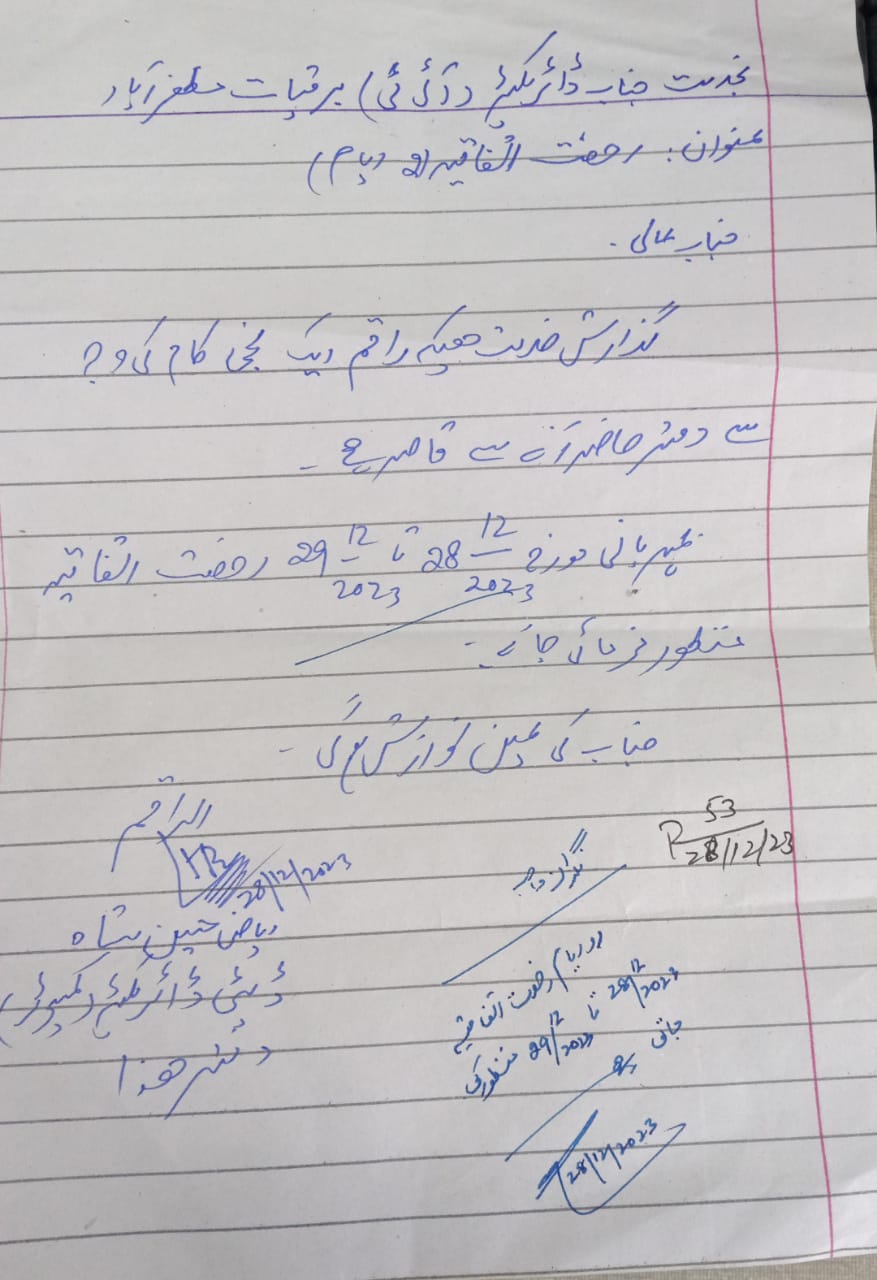 بخدمت جناب ڈائریکٹر (آئی ٹی) برقیات مظفرآباد
عنوان: رخصت اتفاقیہ (2 ایام)
جناب عالی۔
گذارش خدمت ھیکہ راقم ایک نجی کام کی وجہ
سے دفتر حاضر آنے سے قاصر ہے۔
بمہربانی مورخہ 28 12/2023 تا 29 12/2023 رخصت اتفاقیہ
منظور فرمائی جائے۔
جناب کی عین نوازش ہو گی۔
الراقم
28/12/2023
ریاض حسین شاہ
ڈپٹی ڈائریکٹر (کمپیوٹر)
دفتر ھذا
53
28/12/23
دو ایام رخصت اتفاقیہ
28 12/2023 تا 29 12/2023 منظور کی
جاتی ہے
28/12/2023